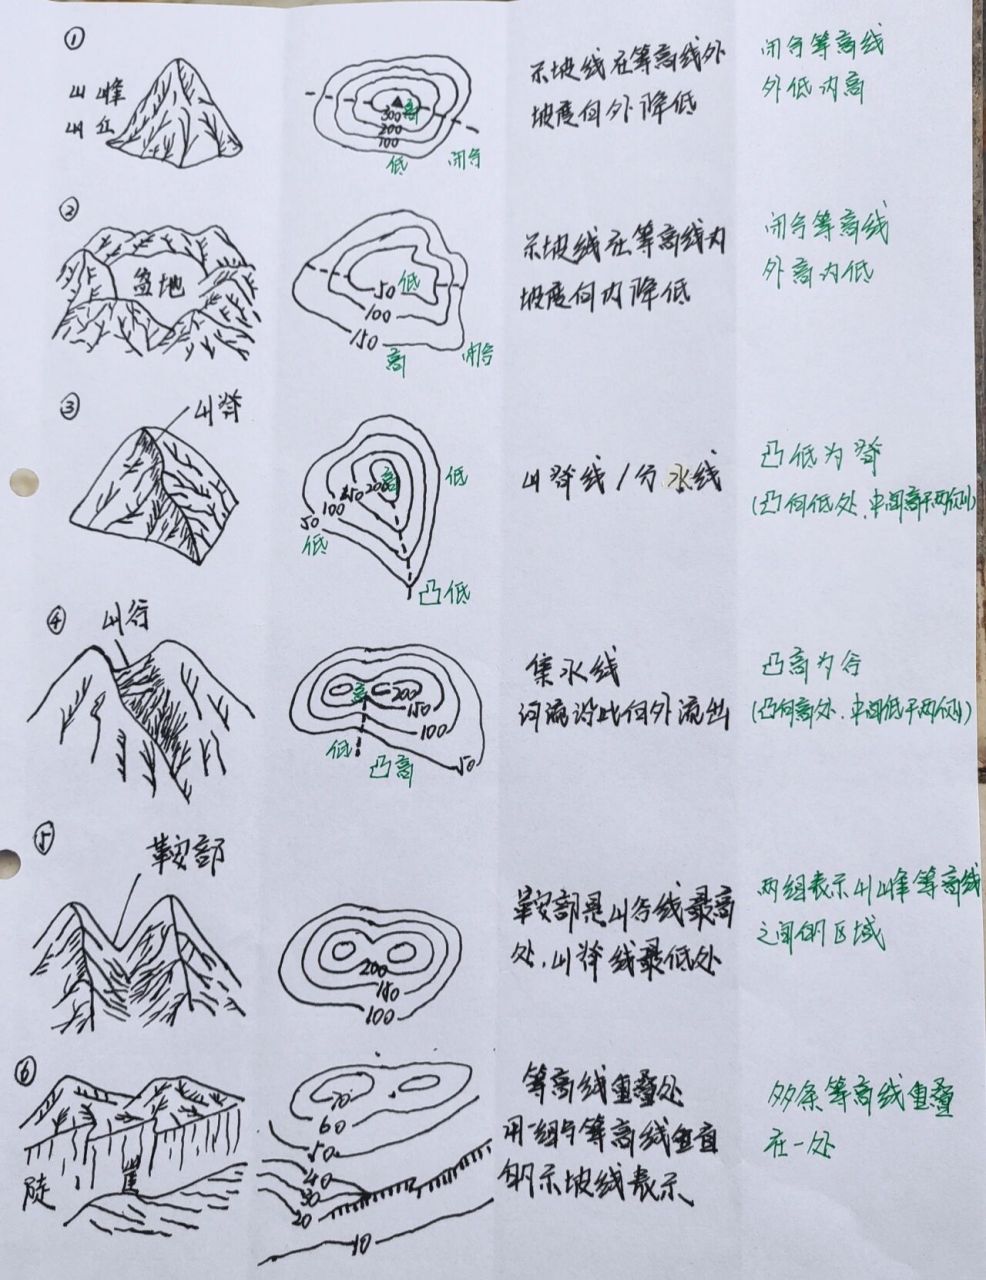 ①
山峰
山丘
300
200
100
高
低
闭合
示坡线在等高线外
坡度向外降低
闭合等高线
外低内高
②
盆地
50
100
150
低
高
闭合
示坡线在等高线内
坡度向内降低
闭合等高线
外高内低
③
山脊
50
100
150
200
高
低
低
凸低
山脊线/分水线
凸低为脊
(凸向低处、中间高于两侧)
④
山谷
高
200
150
100
50
低
凸高
集水线
河流沿此向外流出
凸高为谷
(凸向高处、中间低于两侧)
⑤
鞍部
200
150
100
鞍部是山谷线最高
处、山脊线最低处
两组表示山峰等高线
之间的区域
⑥
陡崖
70
60
50
40
30
20
10
等高线重叠处
用一组与等高线垂直
的示坡线表示
多条等高线重叠
在一处